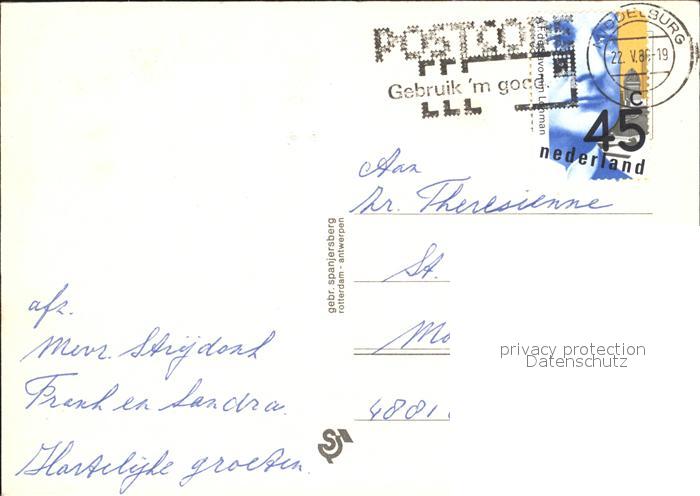 POSTCODE
Gebruik 'm goed.
MIDDELBURG
22. V. 80-19
A.F. de Savornin Lohman
C
45
nederland
Aan
Zr. Theresienne
St.
Mo
4881
gebr. spanjersberg
rotterdam - antwerpen
afz.
Mevr. Strijdonk
Frank en Sandra.
Hartelijke groeten.
privacy protection
Datenschutz